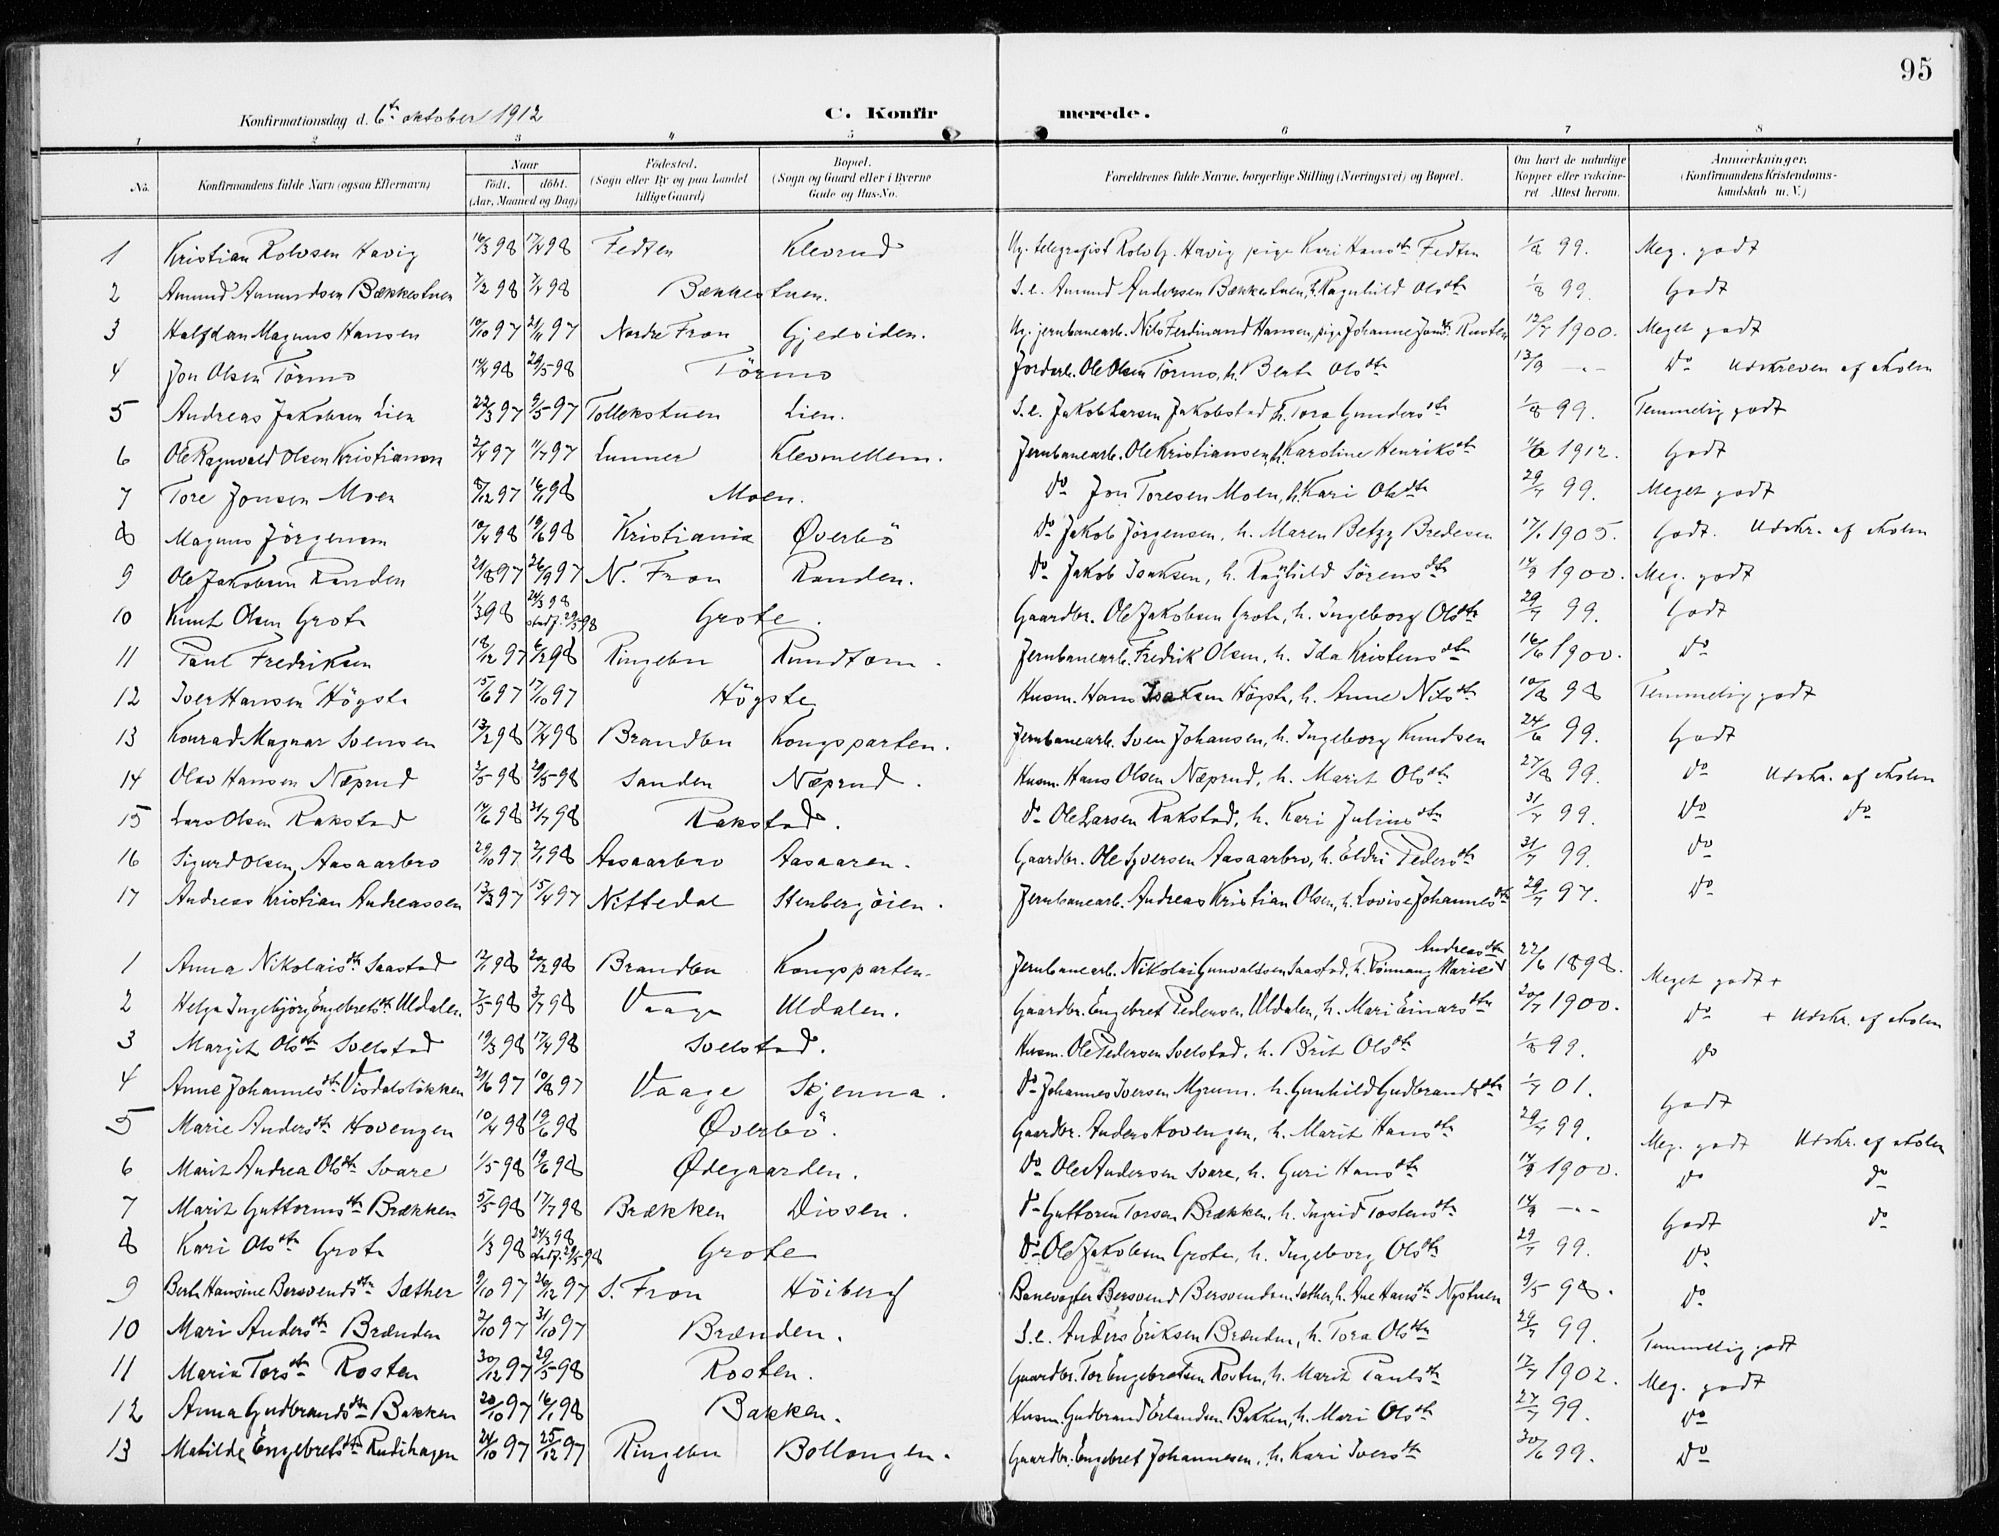 95
Konfirmationsdag d. 6te oktober 1912 C. Konfirmerede.
1 2 3 4 5 6 7 8
No. Konfirmandens fulde Navn (ogsaa Efternavn) Naar født. døbt. (Aar, Maaned og Dag) Fødested. (Sogn eller By og paa Landet tillige Gaard) Bopæl. (Sogn og Gaard eller i Byerne Gade og Hus-No. Forældrenes fulde Navne, borgerlige Stilling (Næringsvei) og Bopæl. Om havt de naturlige Kopper eller vaccineret Attest herom. Anmærkninger. (Konfirmandens Kristendomskundskab m. V.)
1 Kristian Rolvsen Havig 16/3 98 17/4 98 Fedten Klevrud Ug. telegrafist Rolv G. Havig pige Kari Hansdtr Fedten 1/8 99. Meg. godt
2 Amund Amundsen Bækkestuen 7/2 98 7/4 98 Bækkestuen. I.e. Amund Andersen Bækkestuen, h. Ragnhild Olsdtr 1/8 99. Godt
3 Halfdan Magnus Hansen 10/10 97 21/11 97 Nordre Fron Gjedsiden. Ug. jernbanearb. Nils Ferdinand Hansen, pig. Johanne Jonsdtr. Rusten 12/7 1900. Meget godt
4 Jon Olsen Törmo 14/4 98 29/5 98 Törmo Jorderb. Ole Olsen Törmo, h. Berit Olsdtr 13/9 -"- Do Udskreven af skolen
5 Andreas Jakobsen Lien 22/3 97 9/5 97 Tollekstuen Lien. I.e. Jakob Larsen Jakobstad h. Tora Gundersdtr 1/8 99. Temmelig godt
6 Ole Ragnvald Olsen Kristiansen 2/4 97 11/7 97 Lunner Klevmellem. Jernbanearb. Ole Kristiansen, h. Karoline Henriksdtr 4/6 1912. Godt
7 Tore Jonsen Moen 8/12 97 16/1 98 Moen. Do Jon Toresen Moen, h. Kari Olsdtr 29/7 99. Meget godt
8 Magnus Jörgensen 10/4 98 19/6 98 Kristiania Øverbö Do Jakob Jörgensen, h. Maren Betzy Bredesen 17/1 1905. Godt. Udskr. af skolen
9 Ole Jakobsen Randen 21/8 97 26/9 97 N. Fron Randen. Do Jakob Isaksen, h. Ragnhild Sörensdtr 14/9 1900. Meg. godt
10 Knut Olsen Grote 1/3 98 24/3 98 stadf. 29/5 98 Grote. Gaardbr. Ole Jakobsen Grote, h. Ingeborg Olsdtr 29/7 99. Godt
11 Paul Fredriksen 18/12 97 6/2 98 Ringebu Rundtom. Jernbanearb. Fredrik Olsen, h. Ida Kristensdtr 16/6 1900. Do
12 Iver Hansen Högste 15/6 97 17/10 97 Högste Husm. Hans Isaksen Högste, h. Anne Nilsdtr 10/8 98 Temmelig godt
13 Konrad Magnar Svensen 13/2 98 17/4 98 Brandbu Kongsparten. Jernbanearb. Sven Johansen, h. Ingeborg Knudsen 24/6 99. Godt
14 Olav Hansen Næprud 3/5 98 29/5 98 Sanden Næprud. Husm. Hans Olsen Næprud, h. Marit Olsdtr 27/8 99. Do Udskr. af skolen
15 Lars Olsen Rakstad 14/6 98 31/7 98 Rakstad. Do Ole Larsen Rakstad, h. Kari Juliusdtr 31/7 99. Do Do
16 Sigurd Olsen Aasaarbro 29/10 97 2/1 98 Aasaarbro Aasaaren. Gaardbr. Ole Iversen Aasaarbro, h. Eldri Pedersdtr 31/7 99. Do
17 Andreas Kristian Andreassen 13/3 97 15/4 97 Nittedal Stenbergöien. Jernbanearb. Andreas Kristian Olsen, h. Lovise Johannesdtr 29/7 97. Do
1 Anna Nikolaisdtr Saastad 12/1 98 20/2 98 Brandbu Kongsparten. Jernbanearb. Nikolai Gunvaldsen Saastad, h. Rønnaug Marie Andreasdtr 22/6 1898. Meget godt +
2 Helga Ingebjörg Engebretsdtr Uldalen 7/5 98 3/7 98 Vaage Uldalen. Gaardbr. Engebret Pedersen Uldalen, h. Mari Einarsdtr 20/7 1900. Do + Udskr. af skolen
3 Marjit Olsdtr Svelstad 19/3 98 17/4 98 Svelstad. Husm. Ole Pedersen Svelstad, h. Brit Olsdtr 1/8 99. Do
4 Anne Johannesdtr Visdalslökken 29/6 97 10/8 97 Vaage Skjenna. Do Johannes Iversen Myrum. h. Gunhild Gudbrandsdtr 1/7 01. Godt
5 Marie Andersdtr Hovengen 10/4 98 19/6 98 Øverbö. Gaardbr. Anders Hovengen, h. Marit Hansdtr 29/7 99. Meg. godt Udskr. af skolen
6 Marit Andrea Olsdtr Svare 1/5 98 19/6 98 Ødegaarden. Do Ole Andersen Svare, h. Guri Hansdtr 14/9 1900. Do Do
7 Marit Guttormsdtr Brækken 5/5 98 17/7 98 Brækken Dissen. Do Guttorm Torsen Brækken, h. Ingrid Tostensdtr 14/9 -"- Godt Do
8 Kari Olsdtr Grote 1/3 98 24/3 98 stadf. 29/5 98 Grote Do Ole Jakobsen Grote, h. Ingeborg Olsdtr 29/7 99. Do
9 Berte Hansine Bersvendsdtr Sæther 9/10 97 26/12 97 S. Fron Höiberg Banevogter Bersvend Bersvendsen Sæther, h. Ane Hansdtr Nystuen 9/5 98. Do
10 Mari Andersdtr Brænden 3/10 97 31/10 97 Brænden. I.e. Anders Eriksen Brænden, h. Tora Olsdtr 29/7 99. Temmelig godt
11 Maria Torsdtr Rosten 30/12 97 29/5 98 Rosten. Gaardbr. Tor Engebretsen Rosten, h. Marit Paulsdtr 17/7 1902. Meg. godt
12 Anna Gudbrandsdtr Bakken 20/10 97 16/1 98 Bakken. Husm. Gudbrand Erlandsen Bakken, h. Mari Olsdtr 27/7 99. Do
13 Matilde Engebretsdtr Rudihagen 24/10 97 25/12 97 Ringebu Bollongen. Gaardbr. Engebret Johannesen, h. Kari Iversdtr 30/6 99. Do